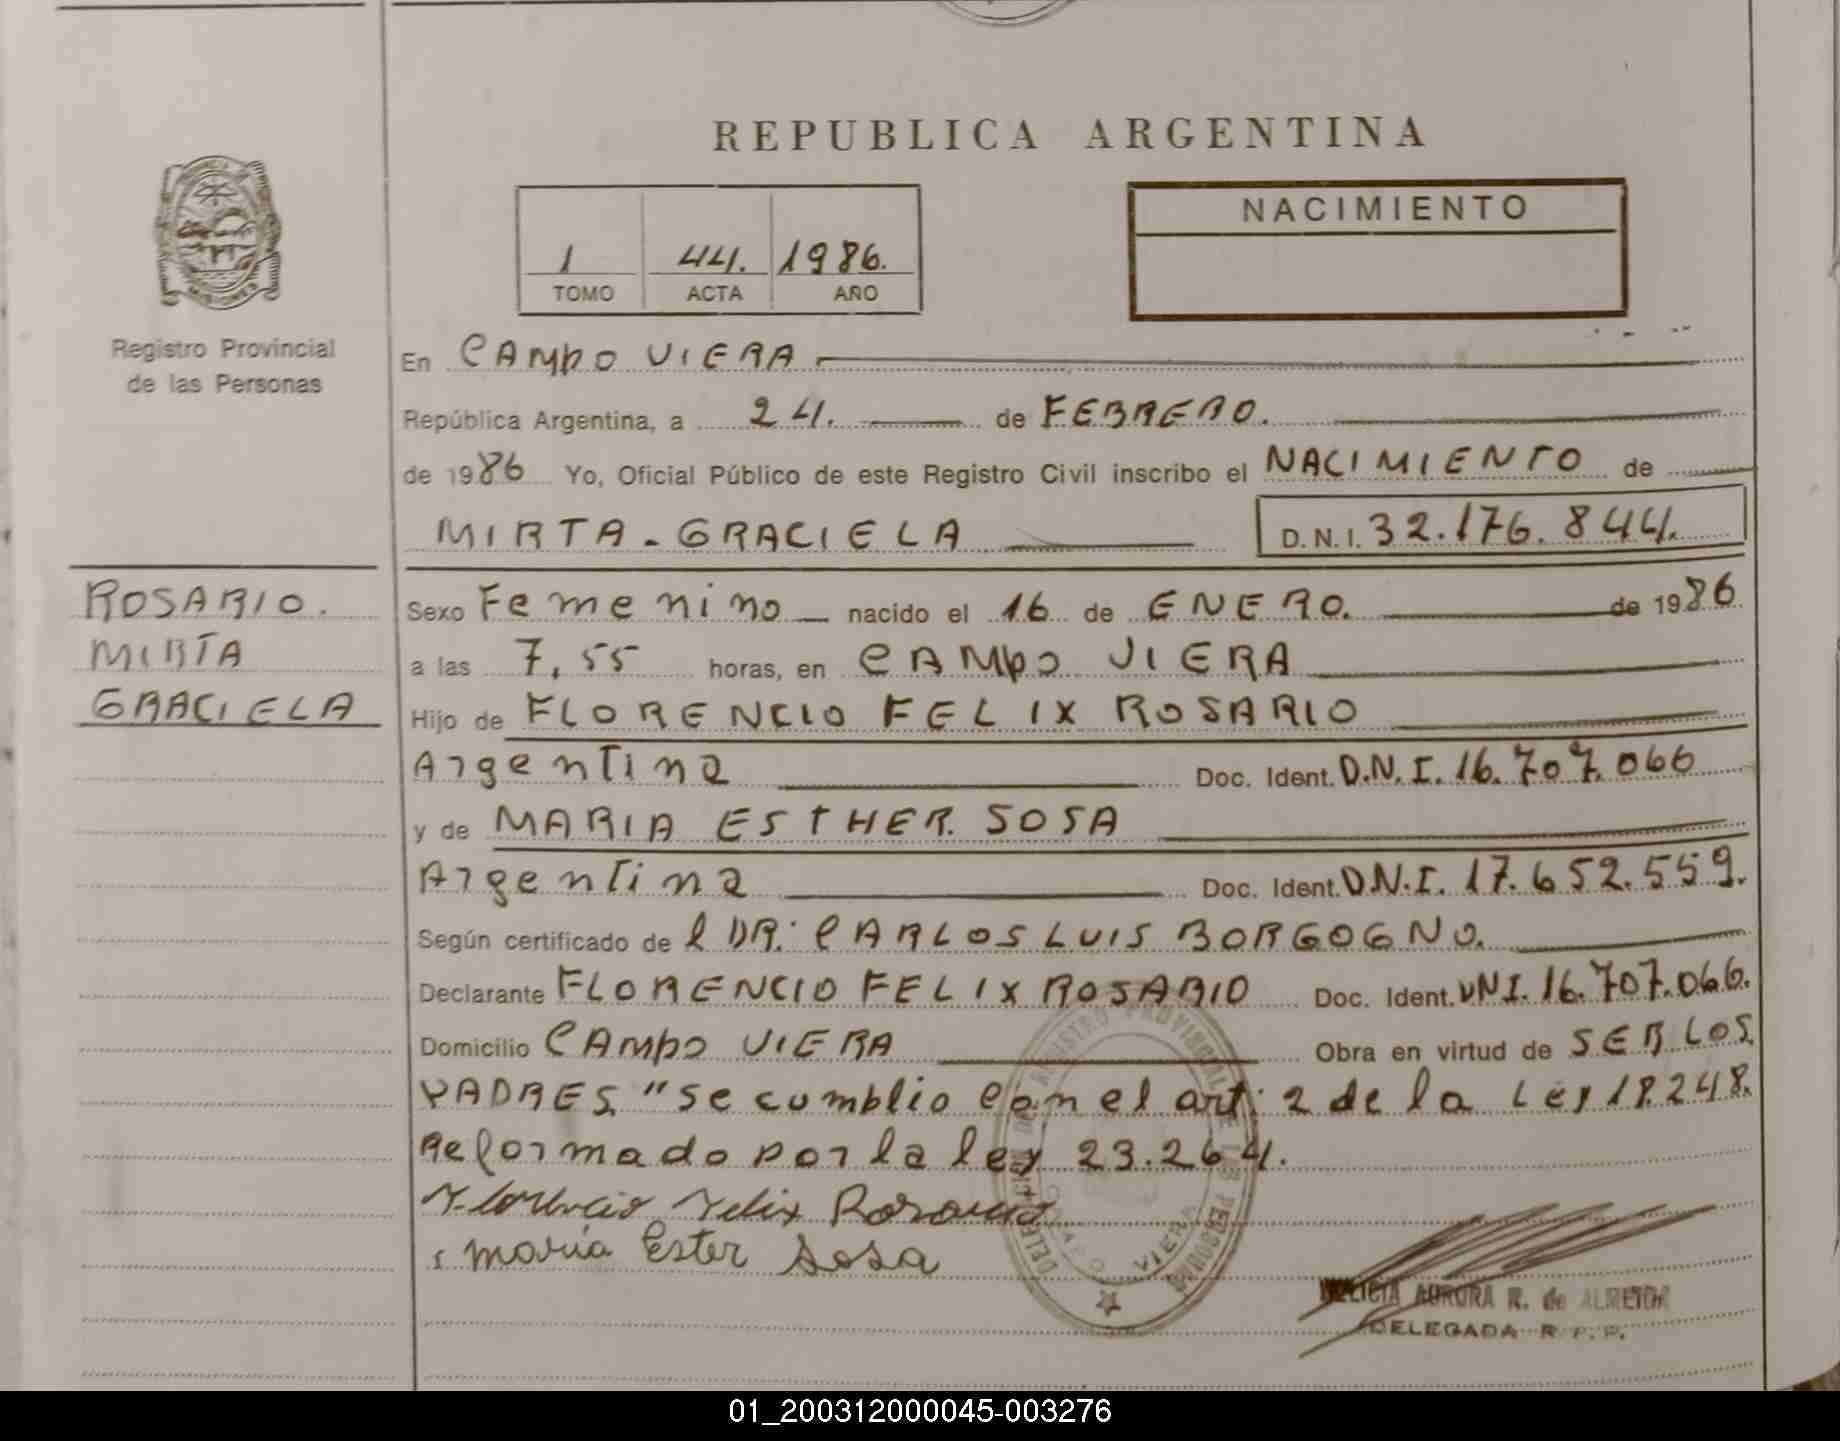 REPUBLICA ARGENTINA
1 44. 1986.
TOMO ACTA AÑO
NACIMIENTO
MISIONES
Registro Provincial
de las Personas
En CAMPO VIERA
República Argentina, a 24. de FEBRERO.
de 1986 Yo, Oficial Público de este Registro Civil inscribo el NACIMIENTO de
MIRTA - GRACIELA D.N.I. 32.176.844.
ROSARIO.
MIRTA
GRACIELA
Sexo Femenino nacido el 16 de ENERO. de 1986
a las 7,55 horas, en CAMPO VIERA
Hijo de FLORENCIO FELIX ROSARIO
Argentina Doc. Ident. D.N.I. 16.707.066
y de MARIA ESTHER SOSA
Argentina Doc. Ident. D.N.I. 17.652.559.
Según certificado de l DR. CARLOS LUIS BORGOGNO.
Declarante FLORENCIO FELIX ROSARIO Doc. Ident. DNI. 16.707.066.
Domicilio CAMPO VIERA Obra en virtud de SER LOS
PADRES. "Se cumplio con el art: 2 de la Ley 18.248.
Reformado por la ley 23.264.
Florencio Felix Rosario
maria Ester Sosa
DELEGACION DEL REGISTRO PROVINCIAL DE LAS PERSONAS
CAMPO VIERA
DELICIA AURORA R. de ALMEIDA
DELEGADA R.P.P.
01_200312000045-003276